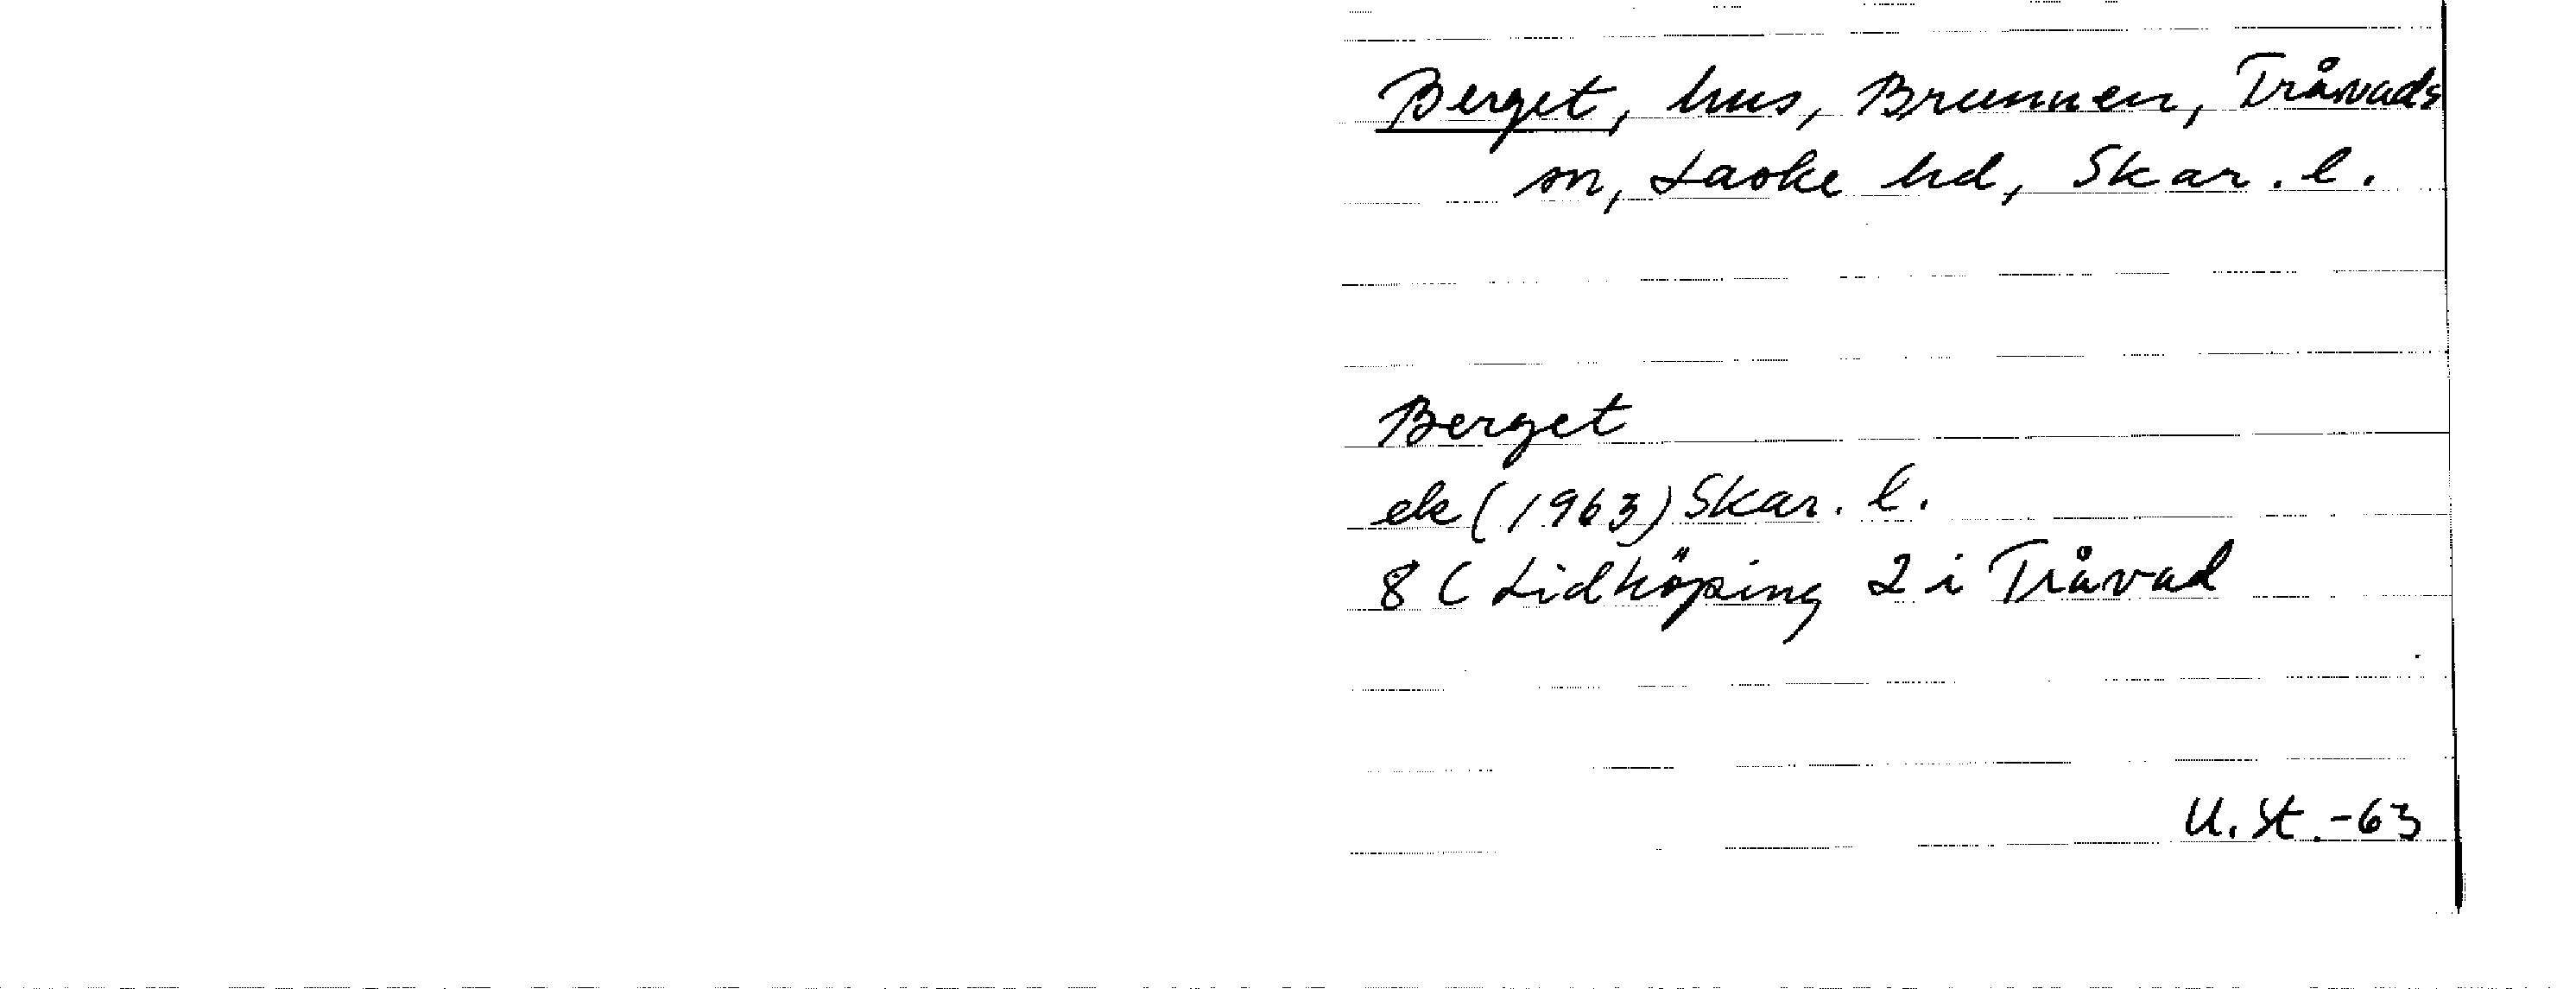 Berget, hus, Brunnen, Tråvads
sn, Laske hd, Skar. l.
Berget
ek (1963) Skar. l.
8 C Lidköping 2 i Tråvad
U. St. -63